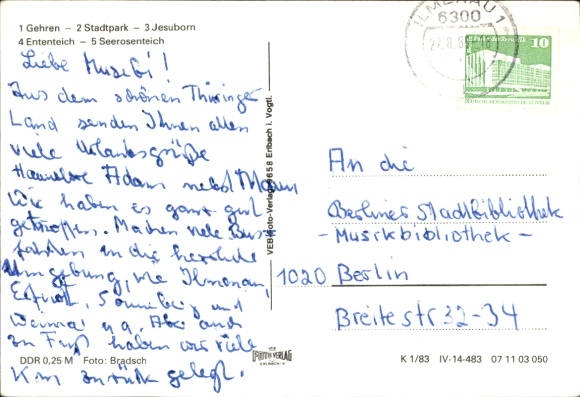 1 Gehren – 2 Stadtpark – 3 Jesuborn
4 Ententeich – 5 Seerosenteich
ILMENAU 1
6300
10
Liebe Musebi!
Aus dem schönen Thüringer
Land senden Ihnen allen
viele Urlaubsgrüße
Hannelore Adam nebst Mann
Wir haben es ganz gut
getroffen. Machen viele Bus-
fahrten in die herrliche
Umgebung, wie Ilmenau,
Erfurt, Sonneberg und
Weimar u.a. Aber auch
zu Fuß haben wir viele
Km zurück gelegt.
VEB Foto-Verlag 9658 Erlbach i. Vogtl.
An die
Berliner Stadtbibliothek
- Musikbibliothek -
1020 Berlin
Breitestr 32-34
FOTO VERLAG
ERLBACH
DDR 0,25 M Foto: Bradsch
K 1/83 IV-14-483 07 11 03 050